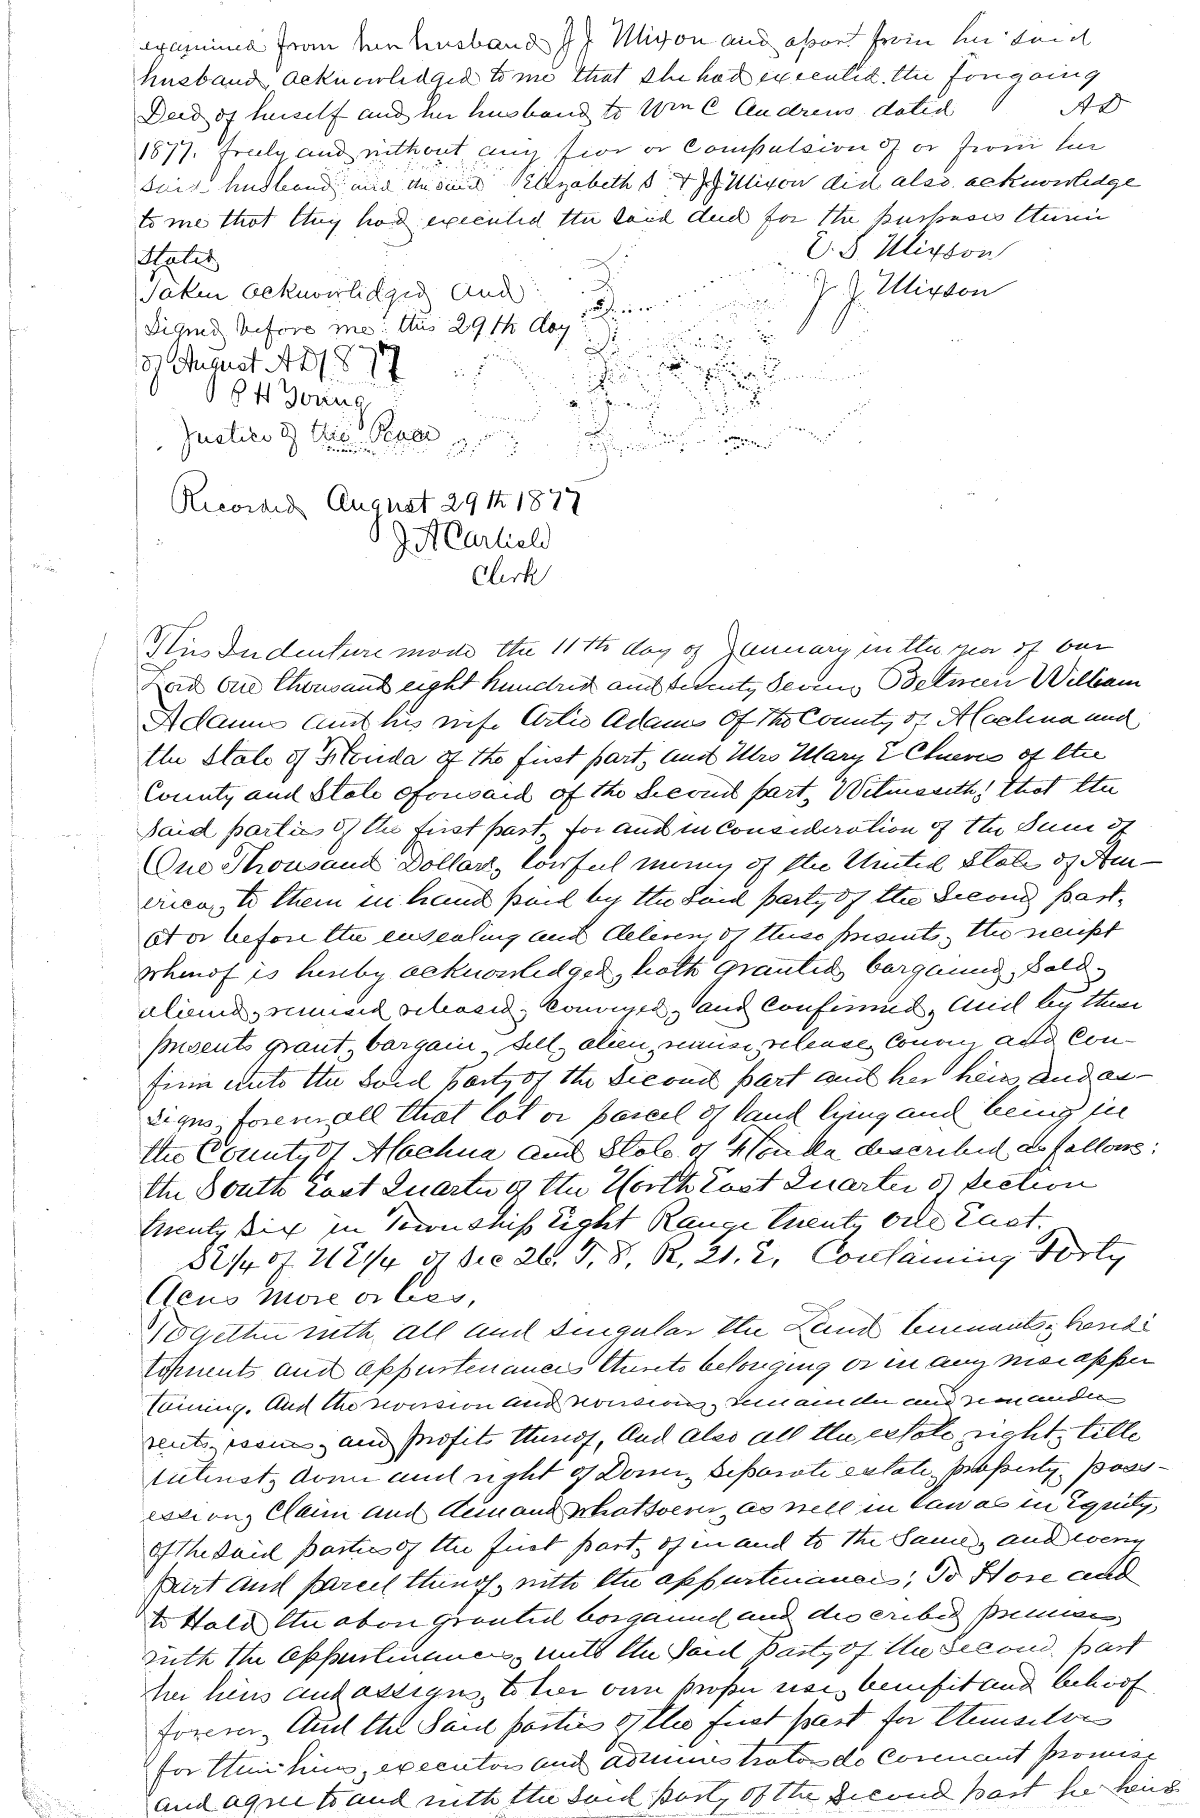 examined from her husband J J Mixon and apart from her said
husband, acknowledged to me that she had executed the foregoing
Deed of herself and her husband to Wm C Andrews dated AD
1877. freely and without any fear or Compulsion of or from her
said husband and the said Elizabeth S & J J Mixon did also acknowledge
to me that they had executed the said deed for the purposes therein
States
E. S. Mixson
Taken acknowledged and
J. J. Mixson
Signed before me this 29th day
of August AD 1877
P H Young
Justice of the Peace
Recorded August 29th 1877
J. A Carlisle
Clerk
This Indenture made the 11th day of January in the year of our
Lord One thousand eight hundred and seventy seven, Between William
Adams and his wife Adams Of the County of Alachua and
the State of Florida of the first part, and Mrs Mary E Cheves of the
County and State aforesaid of the Second part, Witnesseth, that the
said parties of the first part, for and in Consideration of the Sum of
One Thousand Dollars, lawful money of the United States of Am-
erica, to them in hand paid by the Said party of the Second part,
at or before the ensealing and delivery of these presents, the receipt
whereof is hereby acknowledged, hath granted, bargained, Sold,
aliened, remised released, Conveyed, and Confirmed, And by these
presents grant, bargain, Sell, alien, remise, release, Convey and Con-
firm unto the Said party of the Second part and her heirs and as-
signs, forever, all that lot or parcel of land lying and being in
the County of Alachua and State of Florida described as follows:
the South East Quarter of the North East Quarter of Section
twenty Six in Township Eight Range Twenty One East.
SE 1/4 of NE 1/4 of Sec 26. T. 8, R, 21. E, Containing Forty
Acres More or less,
Together with all and singular the Land tenements, heredi
taments and appurtenances thereto belonging or in any wise apper
taining. And the reversion and reversions, remainder and remainders
rents, issues, and profits thereof, And also all the estate, right, title
interest, dower and right of Dower, Separate estate, property, poss-
ession, Claim and demand whatsoever, as well in law as in Equity,
of the Said parties of the first part, of in and to the Same, and every
part and parcel thereof, with the appurtenances; To Have and
to Hold the above granted bargained and described premises
with the appurtenances, unto the Said party of the Second part
her heirs and assigns, to her own proper use, benefit and behoof
forever, And the Said parties of the first part for themselves
for their heirs, executors and administrators do Covenant promise
and agree to and with the Said party of the Second part he heirs